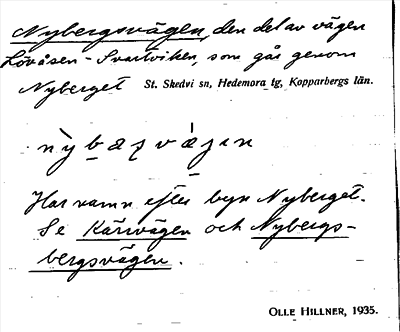 Nybergsvägen, den del av vägen
Lövåsen - Svartviken, som går genom
Nyberget St. Skedvi sn, Hedemora tg, Kopparbergs län.
Har namn efter byn Nyberget.
Se Kärrvägen och Nybergs-
bergsvägen.
OLLE HILLNER, 1935.